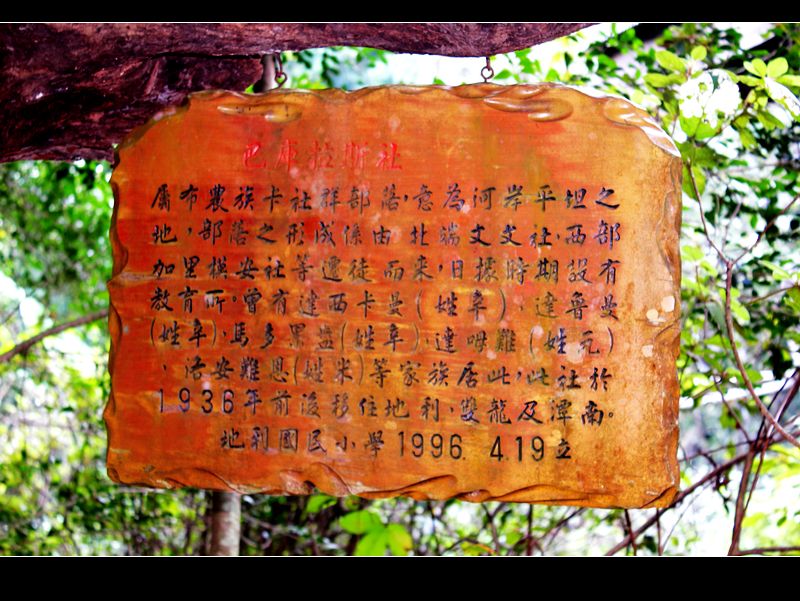 巴庫拉斯社
屬布農族卡社群部落,意為河岸平坦之
地,部落之形成係由北端文文社,西部
加里横安社等遷徒而來,日據時期設有
教育所。曾有達西卡曼(姓辜),達魯曼
(姓辜),馬多黑盎(姓辜),達呣難(姓元)
,洛安難恩(姓米)等家族居此,此社於
1936年前後移住地利,雙龍及潭南。
地利國民小學1996.4.19立